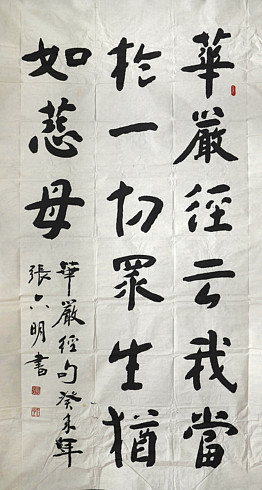 華嚴経云我當
於一切眾生猶
如慈母
華嚴經句癸未年
張六明書